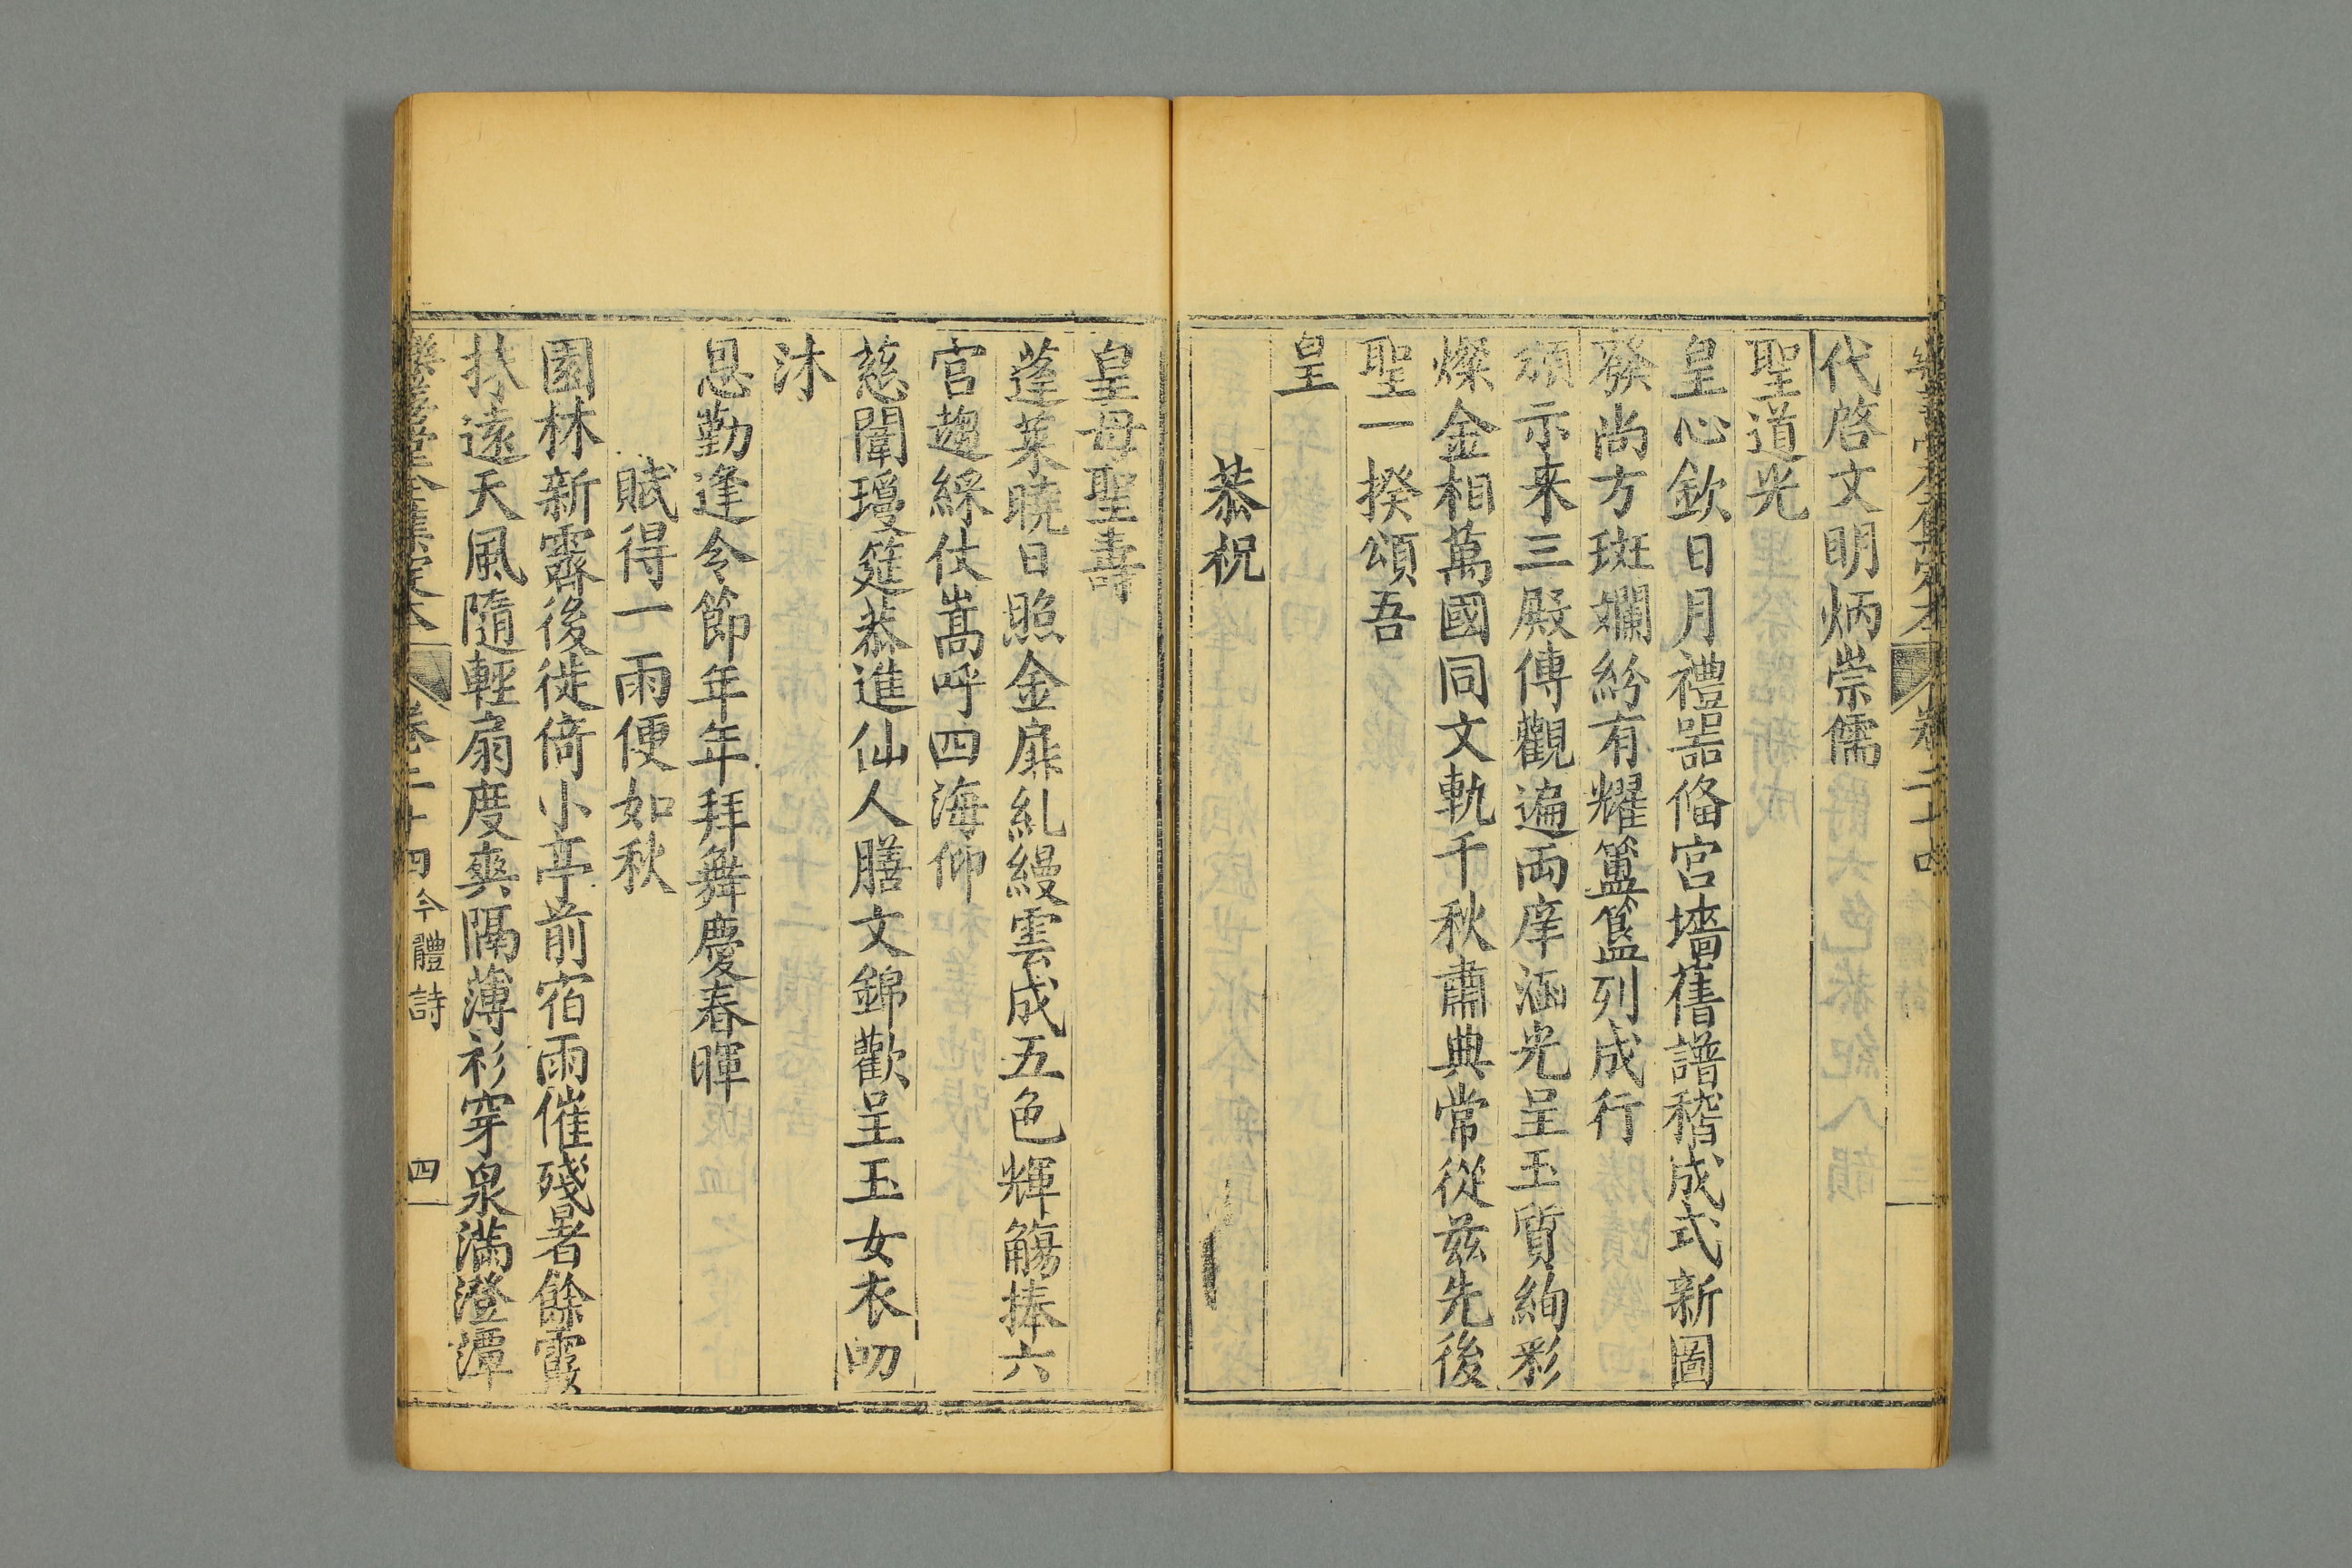 代啓文明炳崇儒
聖道光
皇心欽日月禮器俻宫墻舊譜稽成式新圖
發尚方斑斕紛有耀簠簋列成行
頒示来三殿傳觀遍両庠涵光呈玉質絢彩
燦金相萬國同文軌千秋肅典常從兹先後
聖一揆頌吾
皇
恭祝
皇母聖壽
蓬莱曉日照金扉糺縵雲成五色輝觴捧六
官趨綵仗嵩呼四海仰
慈闈瓊筵恭進仙人膳文錦歡呈玉女衣叨
沐
恩勤逢令節年年拜舞慶春暉
賦得一雨便如秋
園林新霽後徙倚小亭前宿雨催殘暑餘霞
扶遠天風隨輕扇度爽隔薄衫穿泉滿澄潭
樂善堂全集定本 卷二十四今體詩 四